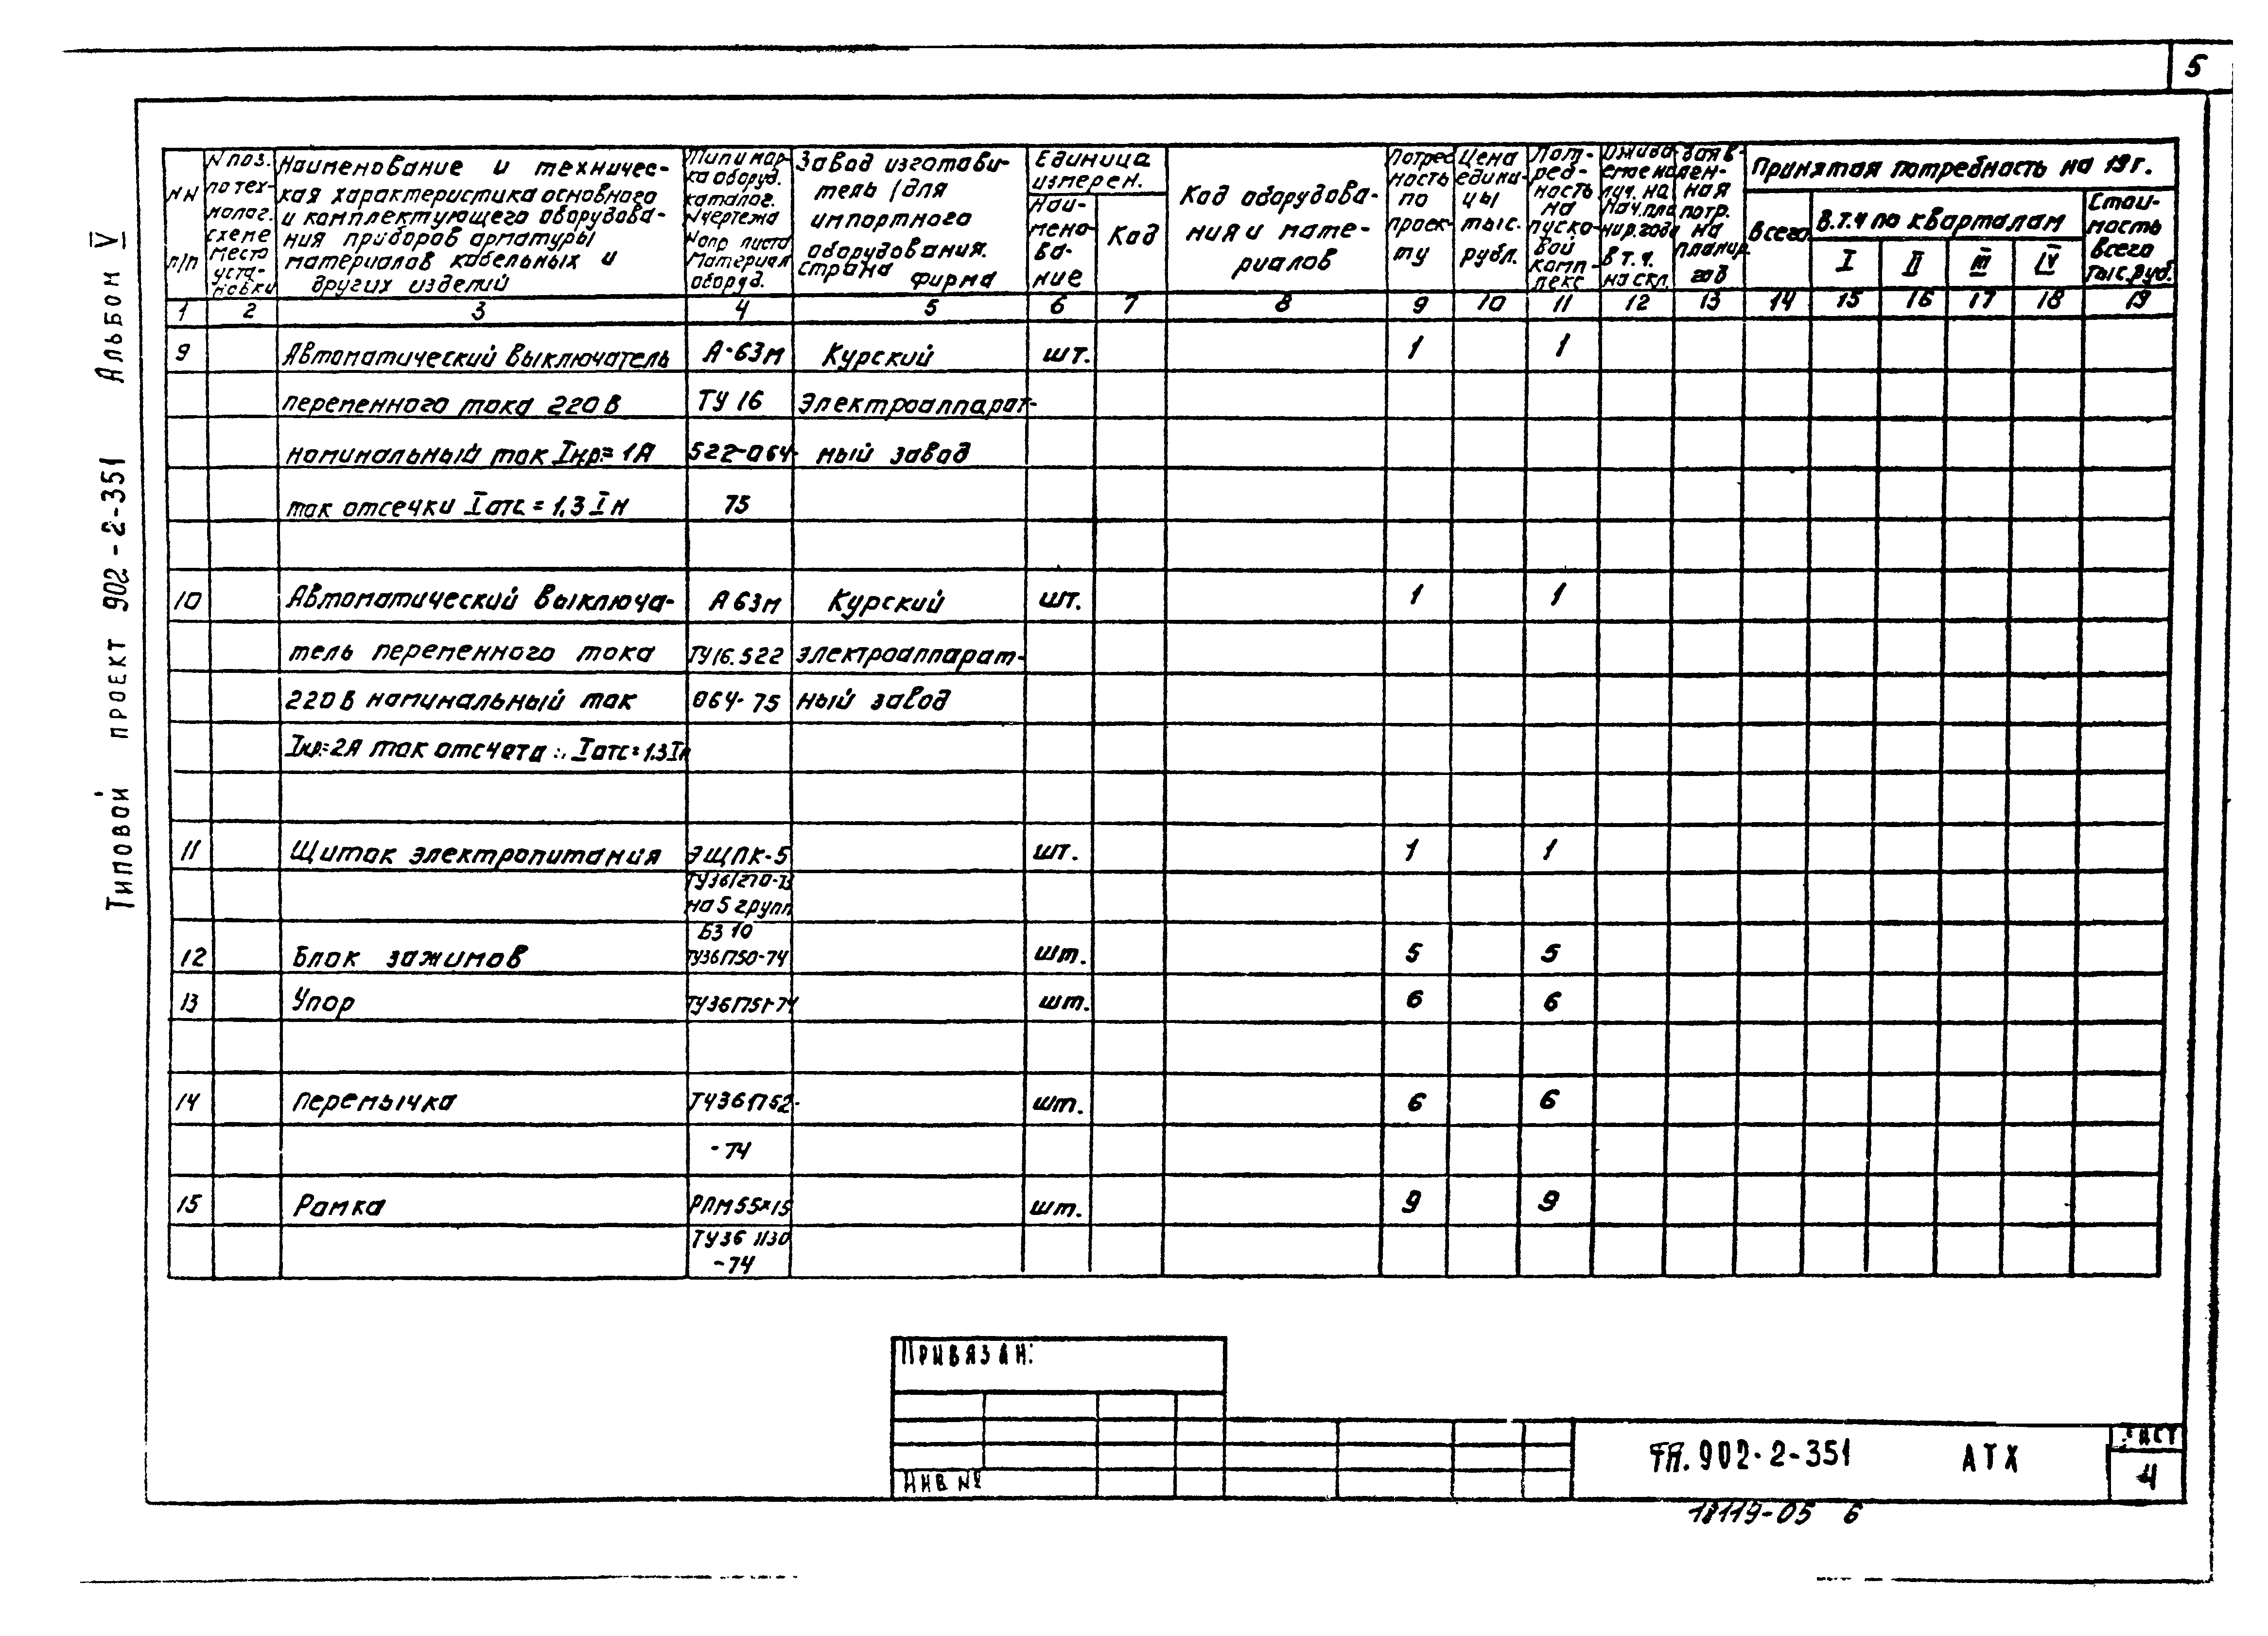 5
Типовой проект 902-2-351 Альбом V
NN п/п
N поз. по технолог. схеме место уста-новки
Наименование и техничес-
кая характеристика основного
и комплектующего оборудова-
ния приборов арматуры
материалов кабельных и
других изделий
Тип и мар-
ка оборуд.
каталог.
N чертежа
N опр. листа
Материал
оборуд.
Завод изготави-
тель (для
импортного
оборудования.
страна фирма
Единица
измерен.
Наи-
мено-
ва-
ние
Код
Код оборудова-
ния и мате-
риалов
Потреб
ность
по
проек-
ту
Цена
едини-
цы
тыс.
рубл.
Пот-
реб-
ность
на
пуско-
вой
комп-
лекс
луч. на
нач. пла
нир. года
в т. ч.
на скл.
Заяв-
лен-
ная
потр.
на
планир.
год
Принятая потребность на 19 г.
Всего
В т.ч по кварталам
I II III IV
Стои-
мость
всего
тыс.руб.
1 2 3 4 5 6 7 8 9 10 11 12 13 14 15 16 17 18 19
9 Автоматический выключатель А-63м Курский шт. 1 1
переменного тока 220В ТУ 16 Электроаппарат-
номинальный ток Iнр.=1А 522-064- ный завод
ток отсечки Iотс.=1,3 Iн 75
10 Автоматический выключа- А63м Курский шт. 1 1
тель переменного тока ТУ16.522 электроаппарат-
220В номинальный ток 064-75 ный завод
Iнр.=2А ток отсчета Iотс=1.3Iн
11 Щиток электропитания ЭЩПК-5 шт. 1 1
ТУ361270-73
на 5 групп
БЗ 10
12 Блок зажимов ТУ361750-74 шт. 5 5
13 Упор ТУ361751-74 шт. 6 6
14 перемычка ТУ361752- шт. 6 6
-74
15 Рамка РПМ55х15 шт. 9 9
ТУ36 1130
-74
Привязан:
Инв №
ТП. 902-2-351 АТХ
Лист
4
18119-05 6